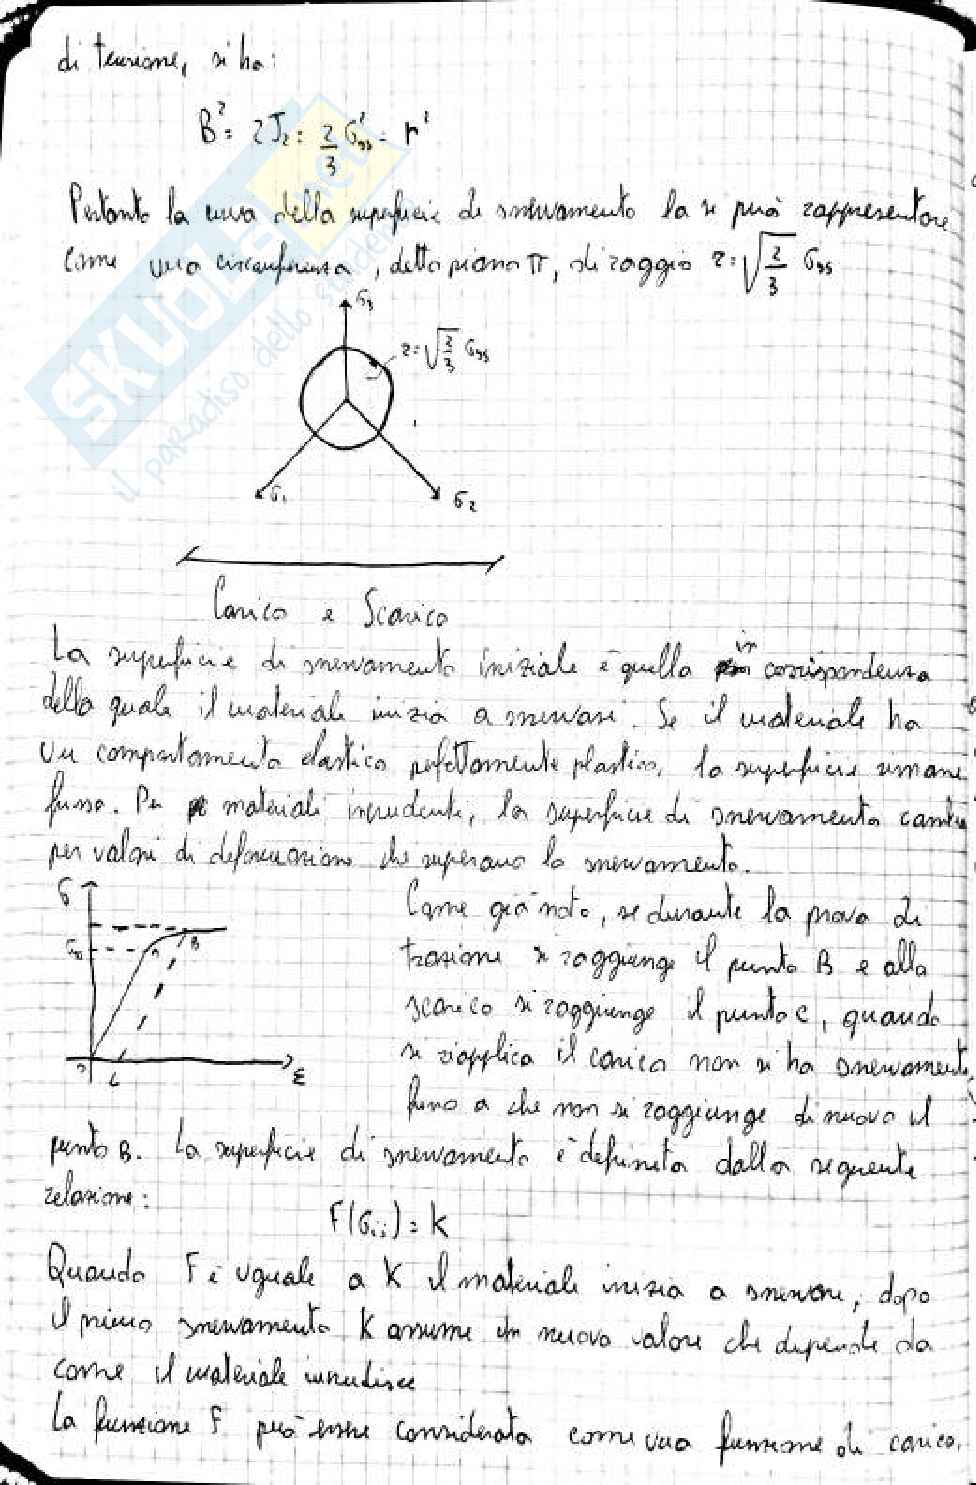 di tensione, si ha:
B² = 2J₂ = 2/3 σ²ys = r²
Pertanto la curva della superficie di snervamento la si può rappresentare
come una circonferenza, detto piano π, di raggio r = √(2/3) σys
σ3
r = √(2/3) σys
σ1
σ2
Carico e Scarico
La superficie di snervamento iniziale è quella in corrispondenza
della quale il materiale inizia a snervarsi. Se il materiale ha
un comportamento elastico perfettamente plastico, la superficie rimane
fissa. Per materiali incrudenti, la superficie di snervamento cambia
per valori di deformazione che superano lo snervamento.
σ
B
ε
C
Come già noto, se durante la prova di
trazione si raggiunge il punto B e allo
scarico si raggiunge il punto C, quando
si riapplica il carico non si ha snervamento,
fino a che non si raggiunge di nuovo il
punto B. La superficie di snervamento è definita dalla seguente
relazione:
F(σij) = K
Quando F è uguale a K il materiale inizia a snervare, dopo
il primo snervamento K assume un nuovo valore che dipende da
come il materiale incrudisce
La funzione F può essere considerata come una funzione di carico.
SKUOLA.net
il paradiso dello studente